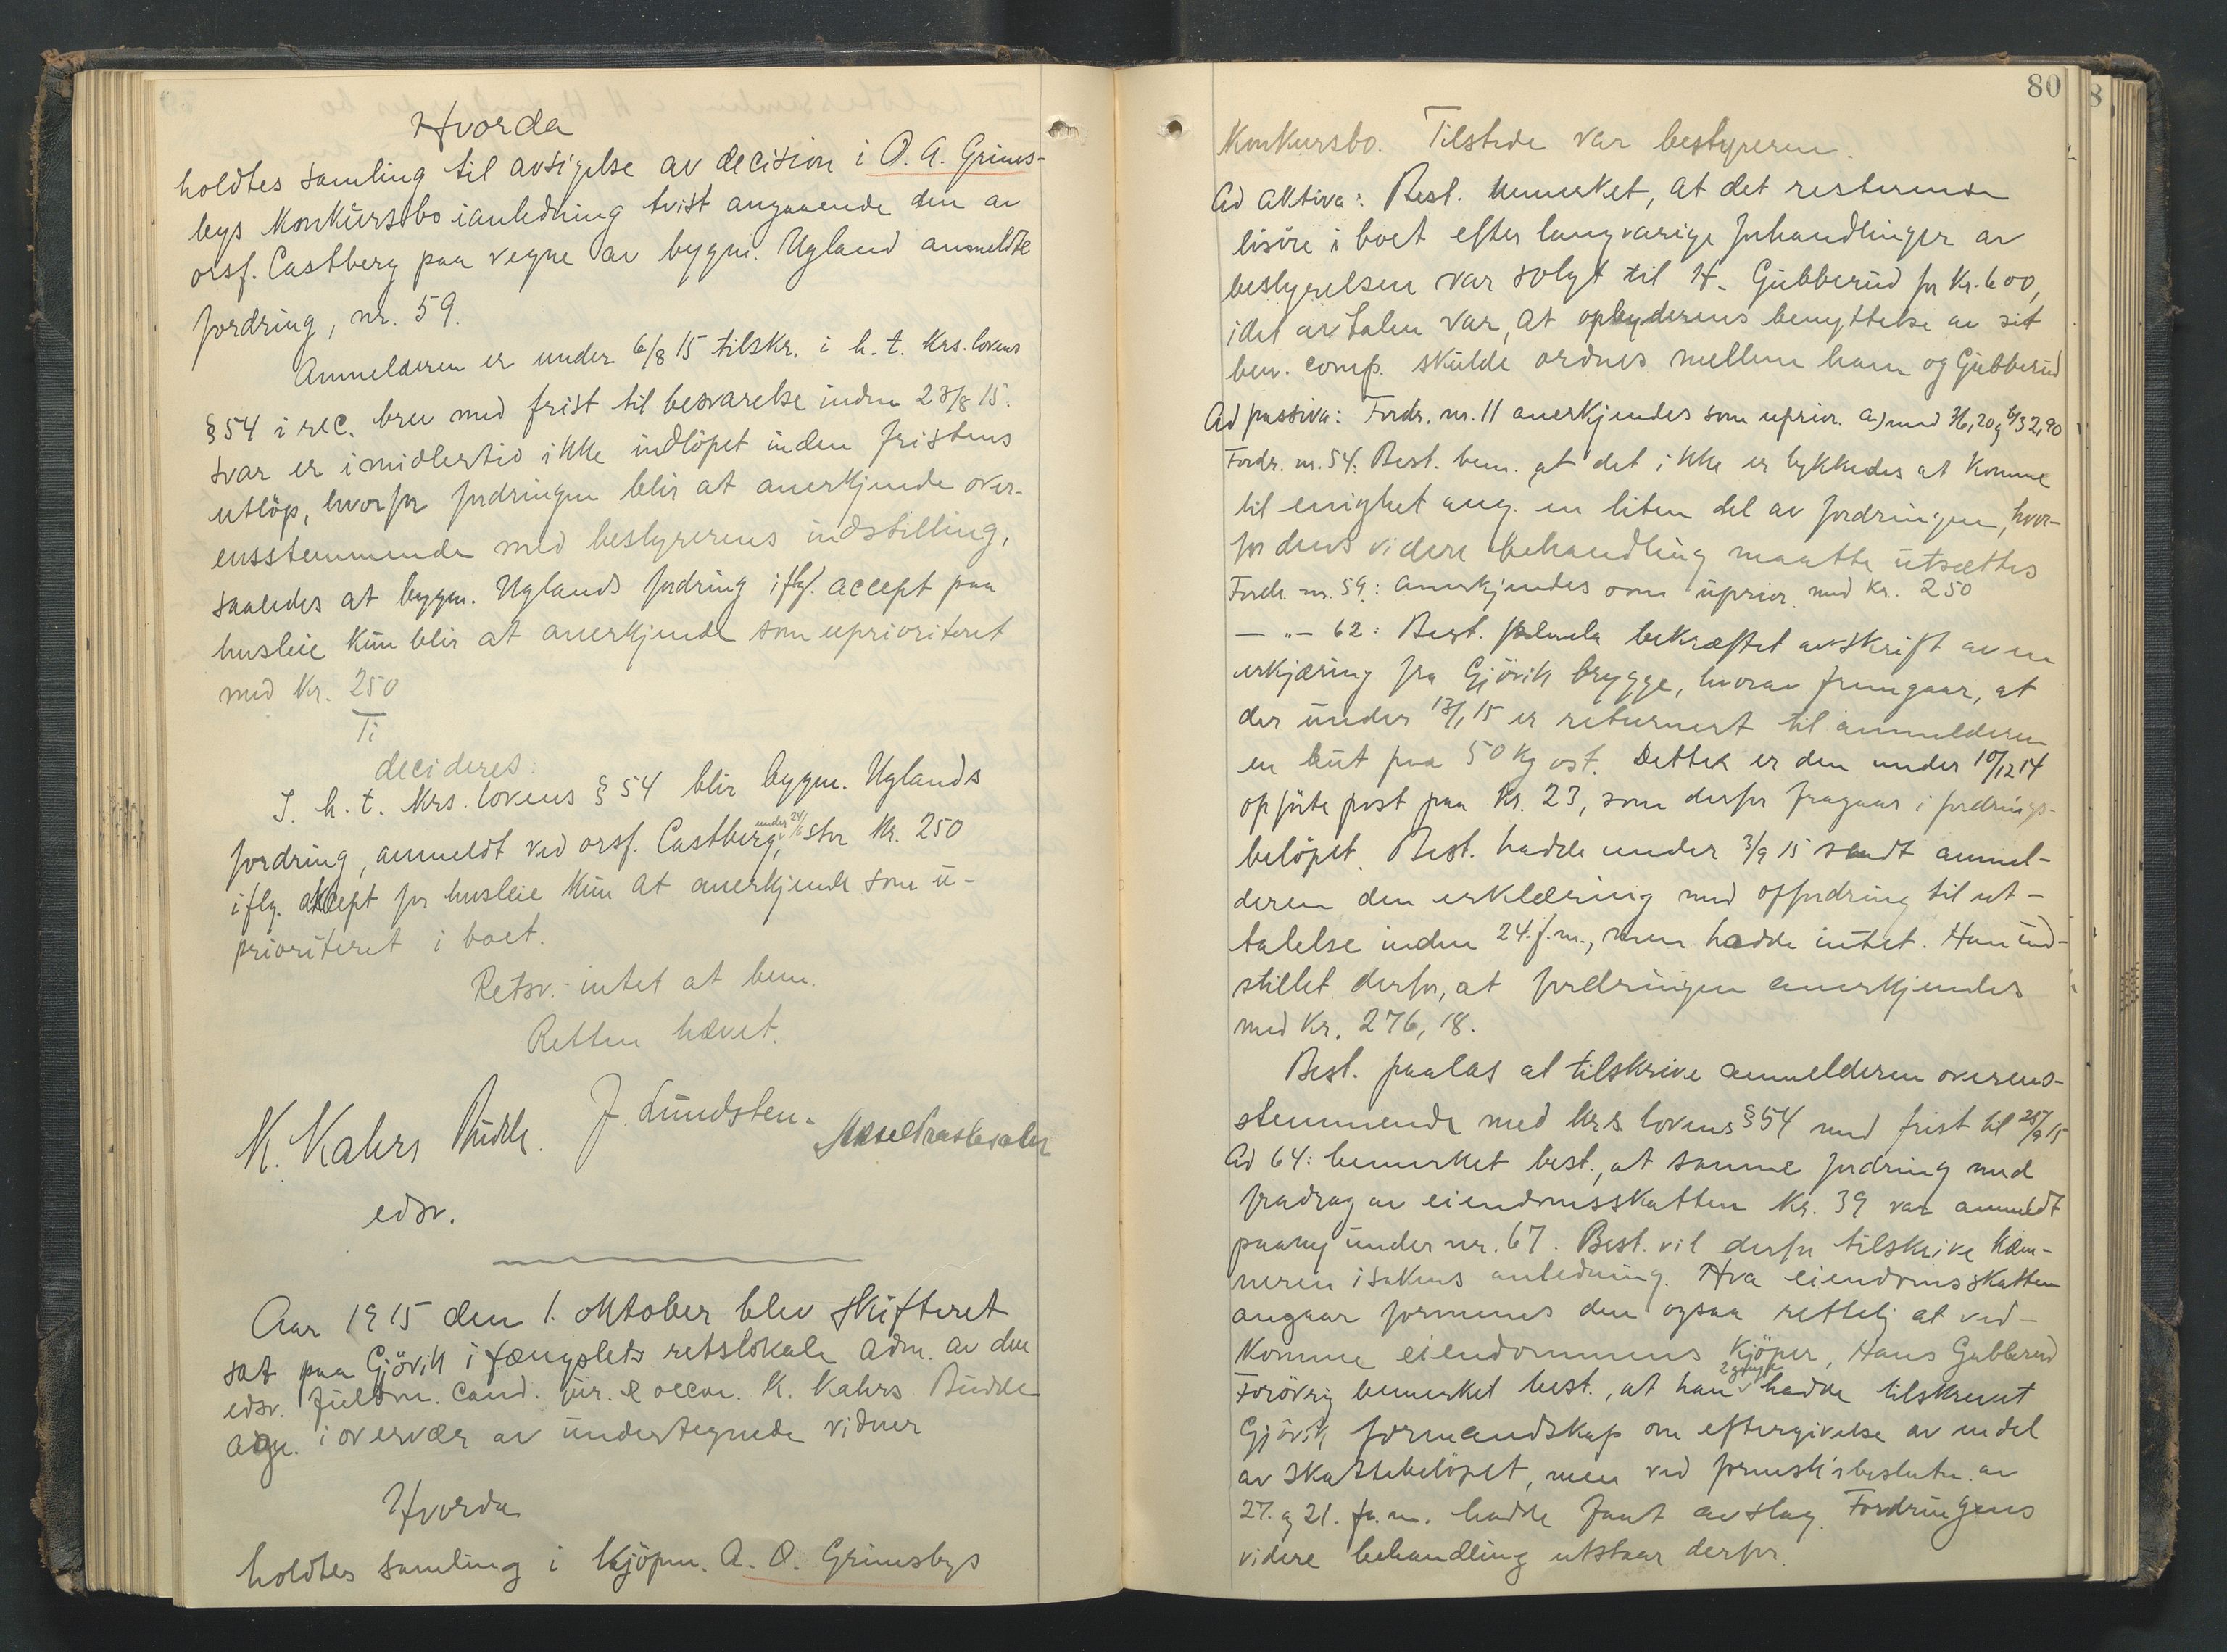 Hvorda
holdtes samling til avsigelse av decision i O. A. Grims-
bys konkursbo i anledning tvist angaaende den av
orsf. Castberg paa vegne av bygm. Ugland anmeldte
fordring, nr. 59.
Anmelderen er under 6/8 15 tilskr. i h. t. krs. lovens
§ 54 i rec. brev med frist til besvarelse inden 23/8 15.
svar er imidlertid ikke indløpet inden fristens
utløp, hvorfor fordringen blir at anerkjende over-
ensstemmende med bestyrerens indstilling,
saaledes at bygm. Uglands fordring iflg. accept paa
husleie kun blir at anerkjende som uprioriteret
med kr. 250
Ti
decideres:
I. h. t. krs. lovens § 54 blir bygm. Uglands
fordring, anmeldt ved orsf. Castberg, under 24/6 stor kr. 250
iflg. akcept for husleie kun at anerkjende som u-
prioriteret i boet.
Retsv. intet at bem.
Retten hævet.
K. Kahrs Budde. J. Lundsten.
edsv.
Aar 1915 den 1. oktober blev skifteret
sat paa Gjövik i fængslets retslokale adm. av den
edsv. fuldm. cand. jur. & oecon. K. Kahrs Budde
i overvær av undertegnede vidner
Hvorda
holdtes samling i kjöpm. A. O. Grimsbys
80
Konkursbo. Tilstede var bestyreren.
Ad aktiva: Best. bemerket, at det resterende
lösöre i boet efter langvarige forhandlinger av
bestyrelsen var solgt til H. Gubberud for kr. 600,
idet avtalen var, at opbyderens benyttelse av sit
ben. comp. skulde ordnes mellem ham og Gubberud
Ad passiva: Fordr. nr. 11 anerkjendes som uprior. a) med 36,20 og b) 32,90
Fordr. nr. 54: Best. bem. at det ikke er lykkedes at komme
til enighet ang. en liten del av fordringen, hvor-
for dens videre behandling maatte utsættes
Fordr. nr. 59: anerkjendes som uprior. med kr. 250
— „ — 62: Best. fremla bekræftet avskrift av en
erkjæring fra Gjövik brygge, hvorav fremgaar, at
der under 13/1 15 er returnert til anmelderen
en but paa 50 kg ost. Dette er den under 10/12 14
opførte post paa kr. 23, som derfor fragaar i fordrings-
beløpet. Best. hadde under 3/9 15 sendt anmel-
deren den erklæring med opfordring til ut-
talelse inden 24. f. m., men hadde intet. Han ind-
stillet derfor, at fordringen anerkjendes
med kr. 276,18.
Best. paalas at tilskrive anmelderen overens-
stemmende med krs. lovens § 54 med frist til 25/9 15
Ad 64: bemerket best., at samme fordring med
fradrag av eiendomsskatten kr. 39 var anmeldt
paany under nr. 67. Best. vil derfor tilskrive kæm-
neren i sakens anledning. Hva eiendomsskatten
angaar formenes den ogsaa rettelig at ved-
komme eiendommens kjöper, Hans Gubberud
Forövrig bemerket best., at han 2 gange hadde tilskrevet
Gjövik formandskap om eftergivelse av en del
av skattebeløpet, men ved beslutn. av
27. og 21. f. m. hadde faat avslag. Fordringens
videre behandling utstaar derfor.